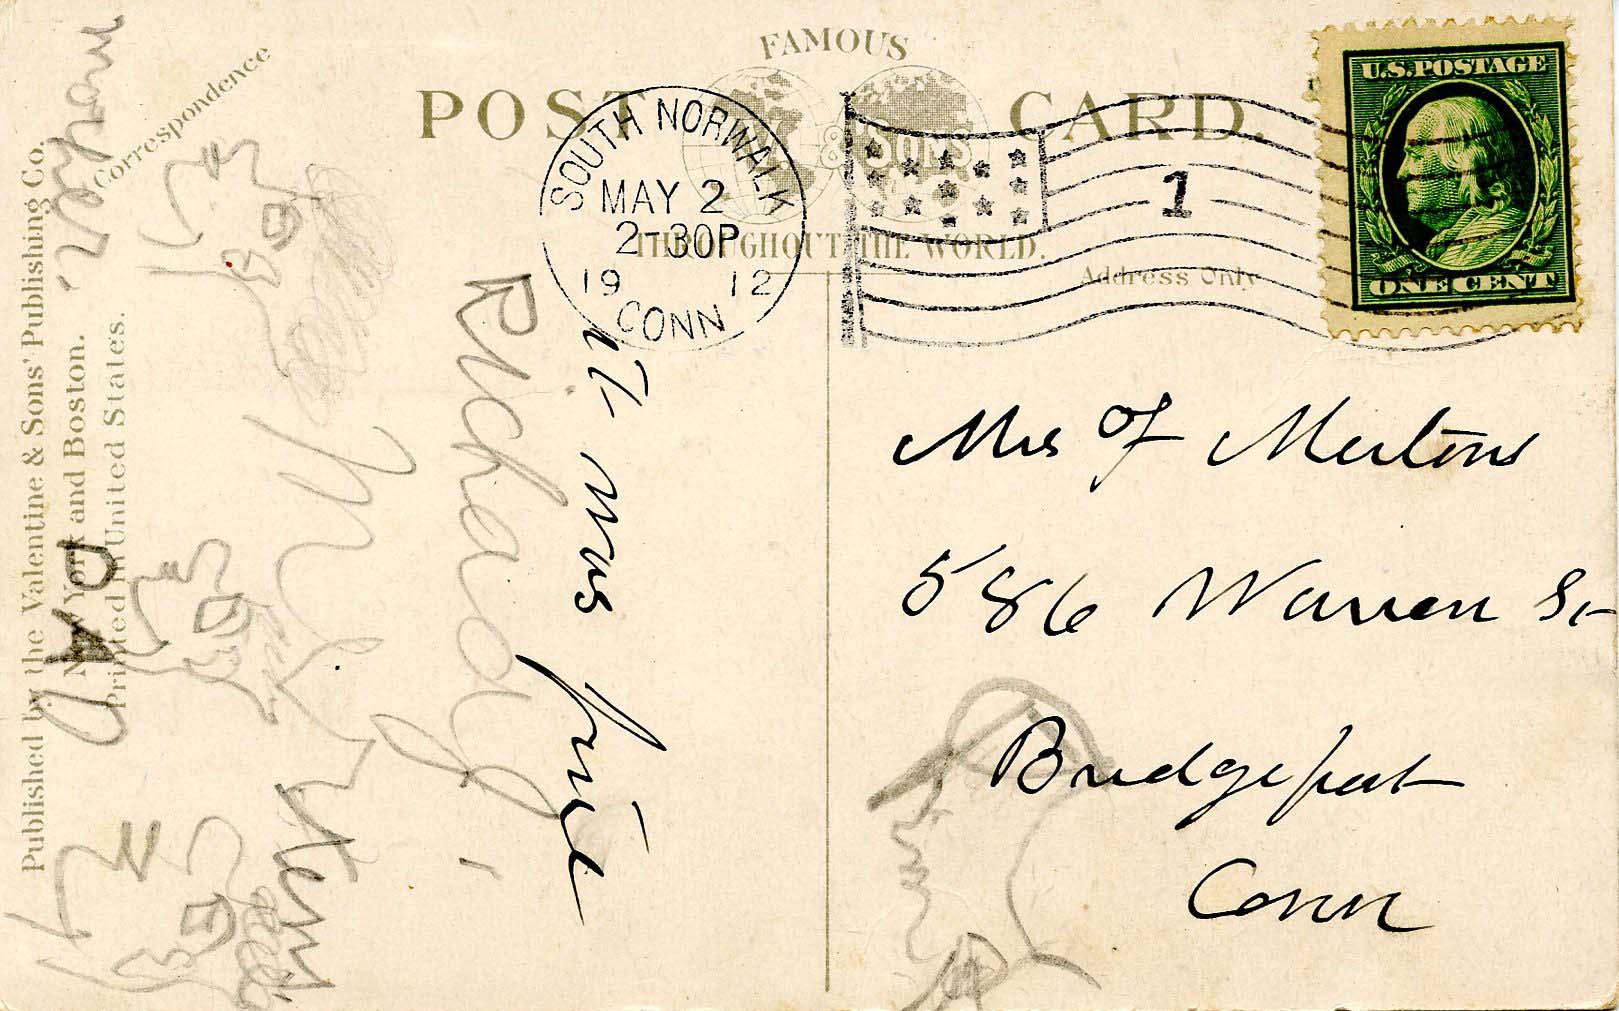 FAMOUS
POST CARD.
& SONS
THROUGHOUT THE WORLD.
Correspondence
Address Only
SOUTH NORWALK
MAY 2
2-30P
19 12
CONN
1
U.S. POSTAGE
ONE CENT
Published by the Valentine & Sons' Publishing Co.
New York and Boston.
Printed in United States.
mother.
it was fine
Mrs
586 Warren St
Bridgeport
Conn